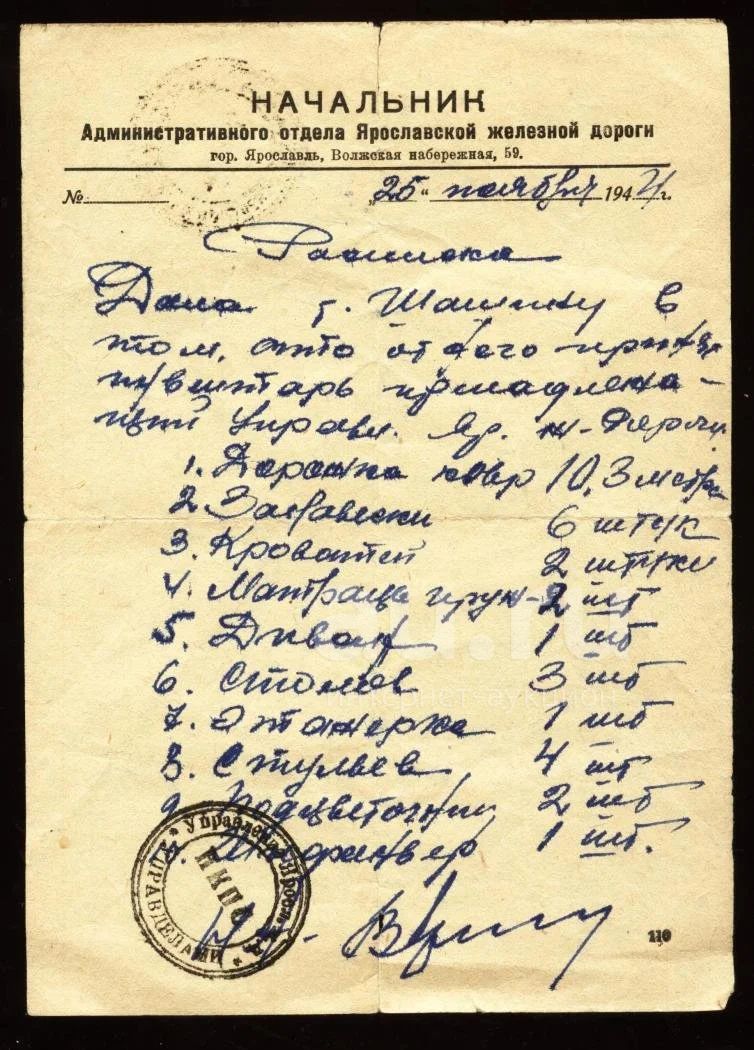 НАЧАЛЬНИК
Административного отдела Ярославской железной дороги
гор. Ярославль, Волжская набережная, 59.
№ "25" ноября 1944 г.
Расписка
Дана т. Шашину в
том, что от него принят
инвентарь принадлежа-
щий Управл. Яр. ж-дороги
1. Дорожка ковр 10,3 метра
2. Занавески 6 штук
3. Кроватей 2 штуки
4. Матраца пруж- 2 шт
5. Диван 1 шт
6. Столов 3 шт
7. Этажерка 1 шт
8. Стульев 4 шт
9. Подцветочник 2 шт
1 шт.
Управление Яросл.
НКПС
УПРАВДЕЛАМИ
110